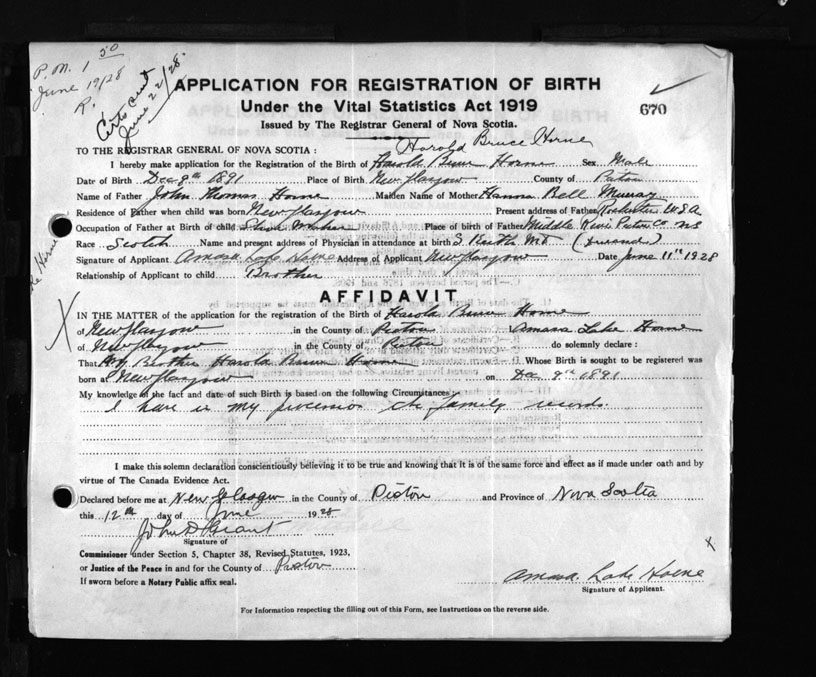 P.M. 1 50
June 19/28
R.
Certs sent
June 22/28.
APPLICATION FOR REGISTRATION OF BIRTH
670
Under the Vital Statistics Act 1919
Issued by The Registrar General of Nova Scotia.
Harold Bruce Horne
TO THE REGISTRAR GENERAL OF NOVA SCOTIA :
I hereby make application for the Registration of the Birth of Harold Horne Sex Male
Date of Birth Dec 9th 1891 Place of Birth New Glasgow County of Pictou
Name of Father John Thomas Horne Maiden Name of Mother Hanna Bell Murray
Residence of Father when child was born New Glasgow Present address of Father U.S.A
Occupation of Father at Birth of child Place of birth of Father Middle River Pictou Co NS
Race Scotch Name and present address of Physician in attendance at birth S. Keith M.D.
Signature of Applicant Amasa Lake Horne Address of Applicant New Glasgow Date June 11th 1928
Relationship of Applicant to child Brother
AFFIDAVIT
IN THE MATTER of the application for the registration of the Birth of Harold Horne
of New Glasgow in the County of Pictou Amasa Lake Horne
of New Glasgow in the County of Pictou do solemnly declare :
That My Brother Harold Horne Whose Birth is sought to be registered was
born at New Glasgow on Dec 9th 1891
My knowledge of the fact and date of such Birth is based on the following Circumstances
I have in my procession the family records.
I make this solemn declaration conscientiously believing it to be true and knowing that it is of the same force and effect as if made under oath and by
virtue of The Canada Evidence Act.
Declared before me at New Glasgow in the County of Pictou and Province of Nova Scotia
this 12th day of June 1928
John D Grant
Signature of
Commissioner under Section 5, Chapter 38, Revised Statutes, 1923,
or Justice of the Peace in and for the County of Pictou
If sworn before a Notary Public affix seal.
Amasa Lake Horne
Signature of Applicant.
For Information respecting the filling out of this Form, see Instructions on the reverse side.